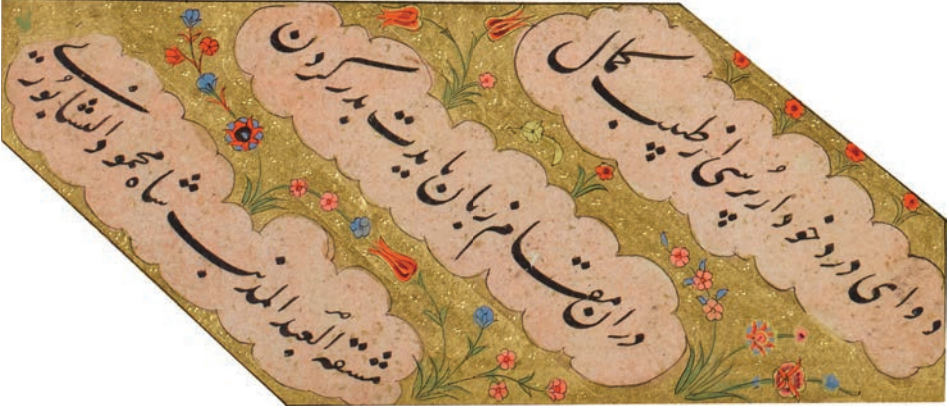 دوای درد خود ار پرسی از طبیب کمال
دران مقام زبان بایدت بدر کردن
مشقه العبد المذنب شاه محمود النیشابوری